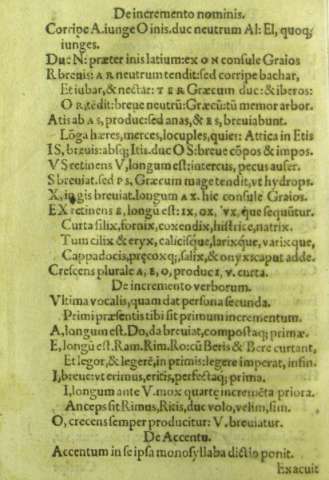 De incremento nominis.
Corripe A.iunge O inis.duc neutrum Al: El, quoq;
iunges.
Duc N: præter inis latium:ex O N consule Graios
R breuis: A R neutrum tendit:sed corripe bachar,
Et iubar, & nectar: T E R Græcum duc: & iberos:
O R, tēdit:breue neutrū: Græcū:tū memor arbor.
Atis ab A s, produc:sed anas, & E s, breuiabunt.
Lōga hæres, merces, locuples, quies: Attica in Etis
IS, breuis:absq; Itis.duc O S: breue cōpos & impos.
V S retinens V, longum est:intercus, pecus aufer.
S breuiat.sed P s, Græcum mage tendit,vt hydrops.
X, in gis breuiat.longum A X. hic consule Graios.
EX retinens E, longū est: IX, OX, VX, que sequūtur.
Curta silix, fornix, coxendix, histrice, natrix.
Tum cilix & eryx, calicisque, larixque, varixque,
Cappadocis, præcoxq;, salix, & onyx caput adde.
Crescens plurale A, E, O, produc I, V. curta.
De incremento verborum.
Vltima vocalis, quam dat persona secunda.
Primi præsentis tibi sit primum incrementum.
A, longum est. Do, da breuiat, compostaq; primæ.
E, longū est. Ram. Rim. Ro: cū Beris & Bere curtant,
Et legor, & legerē, in primis: legere imperat, infin.
I, breue: vt erimus, eritis, perfectaq; prima.
I, longum ante V. mox quarte incremēta priora.
Anceps sit Rimus, Ritis, duc volo, velim, sim.
O, crescens semper producitur: V. breuiatur.
De Accentu.
Accentum in se ipsa monosyllaba dictio ponit.
Exacuit